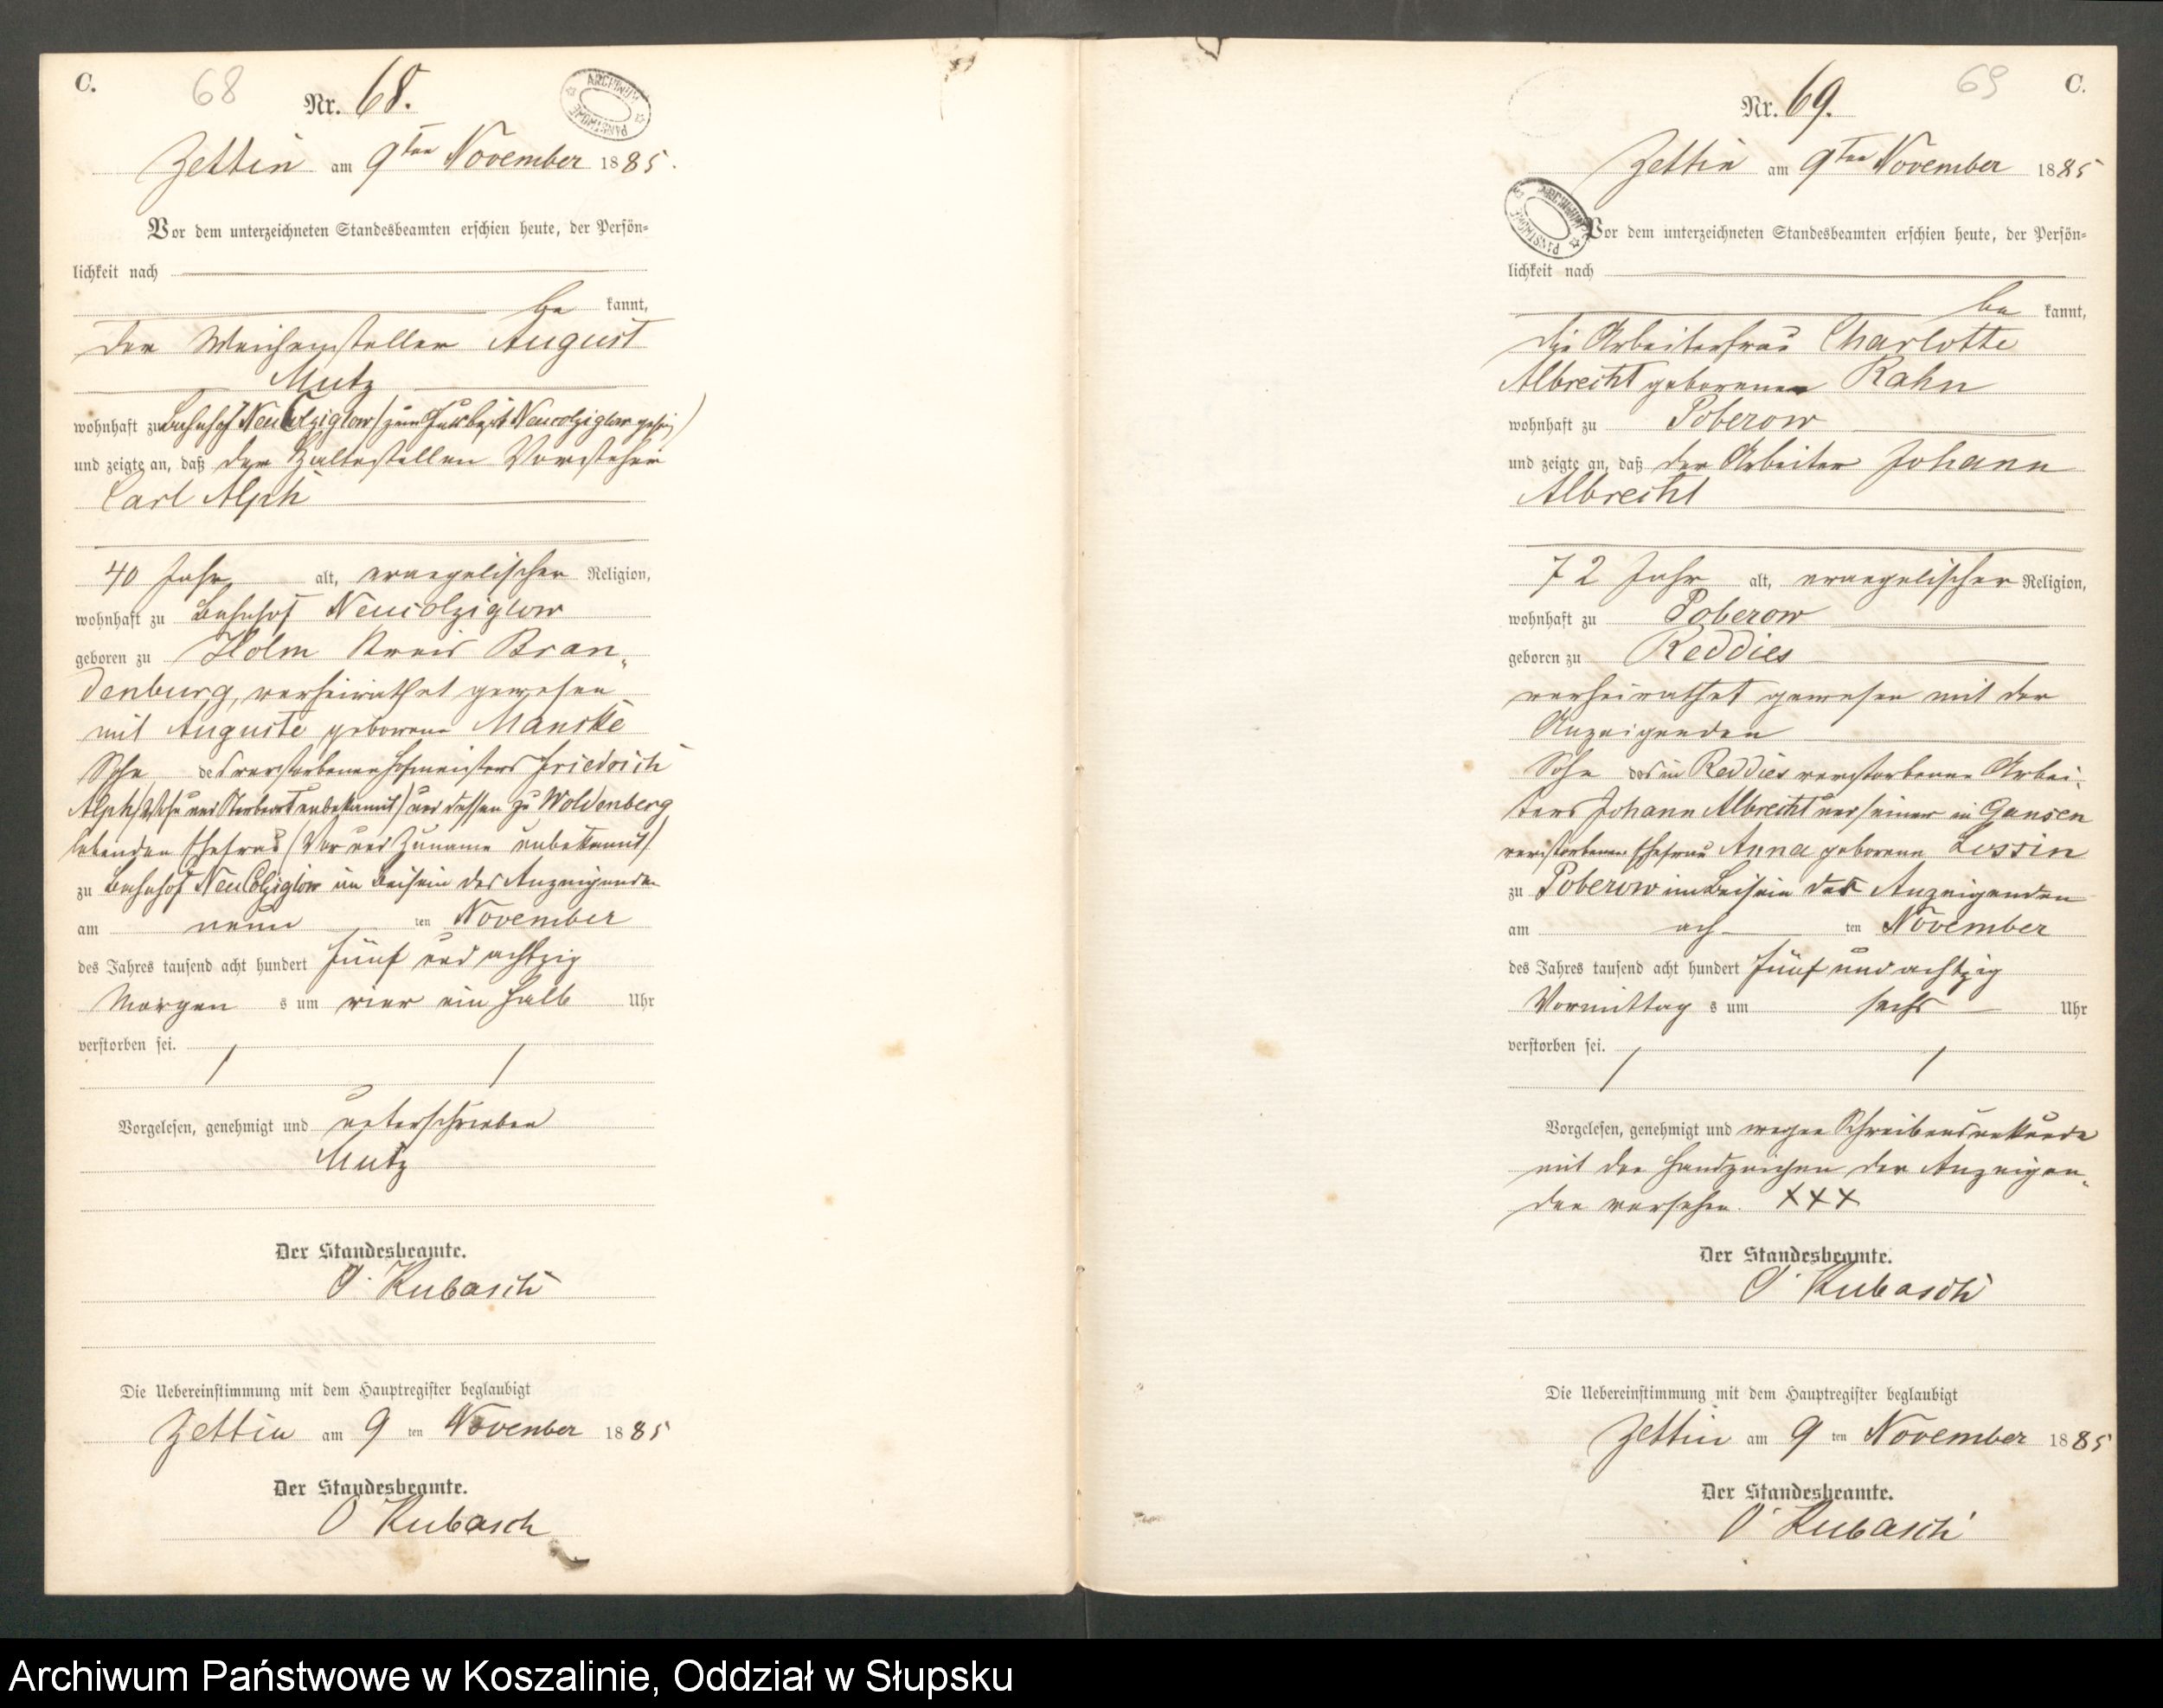 C.
68
Nr. 68.
ARCHIWUM PAŃSTWOWE
Zettin am 9ten November 1885.
Vor dem unterzeichneten Standesbeamten erschien heute, der Persön-
lichkeit nach
be kannt,
der Weichensteller August
Mutz
wohnhaft zu Bahnhof Neu Colziglow (zum Gutsbezirk Neucolziglow gehörig)
und zeigte an, daß der Haltestellen Vorsteher
Carl Alph
40 Jahr alt, evangelischer Religion,
wohnhaft zu Bahnhof Neucolziglow
geboren zu Holm Kreis Bran-
denburg, verheirathet gewesen
mit Auguste geborene Manske
Sohn des verstorbenen Hofmeisters Friedrich
Alph ( und Sterbeort unbekannt) und dessen zu Woldenberg
lebenden Ehefrau (Vor und Zuname unbekannt)
zu Bahnhof Neu Colziglow im Beisein des Anzeigenden
am neun ten November
des Jahres tausend acht hundert fünf und achtzig
Morgen s um vier ein halb Uhr
verstorben sei.
Vorgelesen, genehmigt und unterschrieben
Mutz
Der Standesbeamte.
O. Kubasch
Die Uebereinstimmung mit dem Hauptregister beglaubigt
Zettin am 9 ten November 1885
Der Standesbeamte.
O Kubasch
69
C.
Nr. 69.
Zettin am 9ten November 1885
ARCHIWUM PAŃSTWOWE
Vor dem unterzeichneten Standesbeamten erschien heute, der Persön-
lichkeit nach
be kannt,
die Arbeiterfrau Charlotte
Albrecht geborenen Rahn
wohnhaft zu Poberow
und zeigte an, daß der Arbeiter Johann
Albrecht
72 Jahr alt, evangelischer Religion,
wohnhaft zu Poberow
geboren zu Reddies
verheirathet gewesen mit der
Anzeigenden
Sohn des in Reddies verstorbenen Arbei-
ters Johann Albrecht und seiner in Gansen
verstorbenen Ehefrau Anna geborene Lessin
zu Poberow im Beisein der Anzeigenden
am ach ten November
des Jahres tausend acht hundert fünf und achtzig
Vormittag s um sechs Uhr
verstorben sei.
Vorgelesen, genehmigt und wegen Schreibensunkunde
mit den Handzeichen der Anzeigen-
den versehen. XXX
Der Standesbeamte.
O. Kubasch
Die Uebereinstimmung mit dem Hauptregister beglaubigt
Zettin am 9 ten November 1885
Der Standesbeamte.
O Kubasch
Archiwum Państwowe w Koszalinie, Oddział w Słupsku